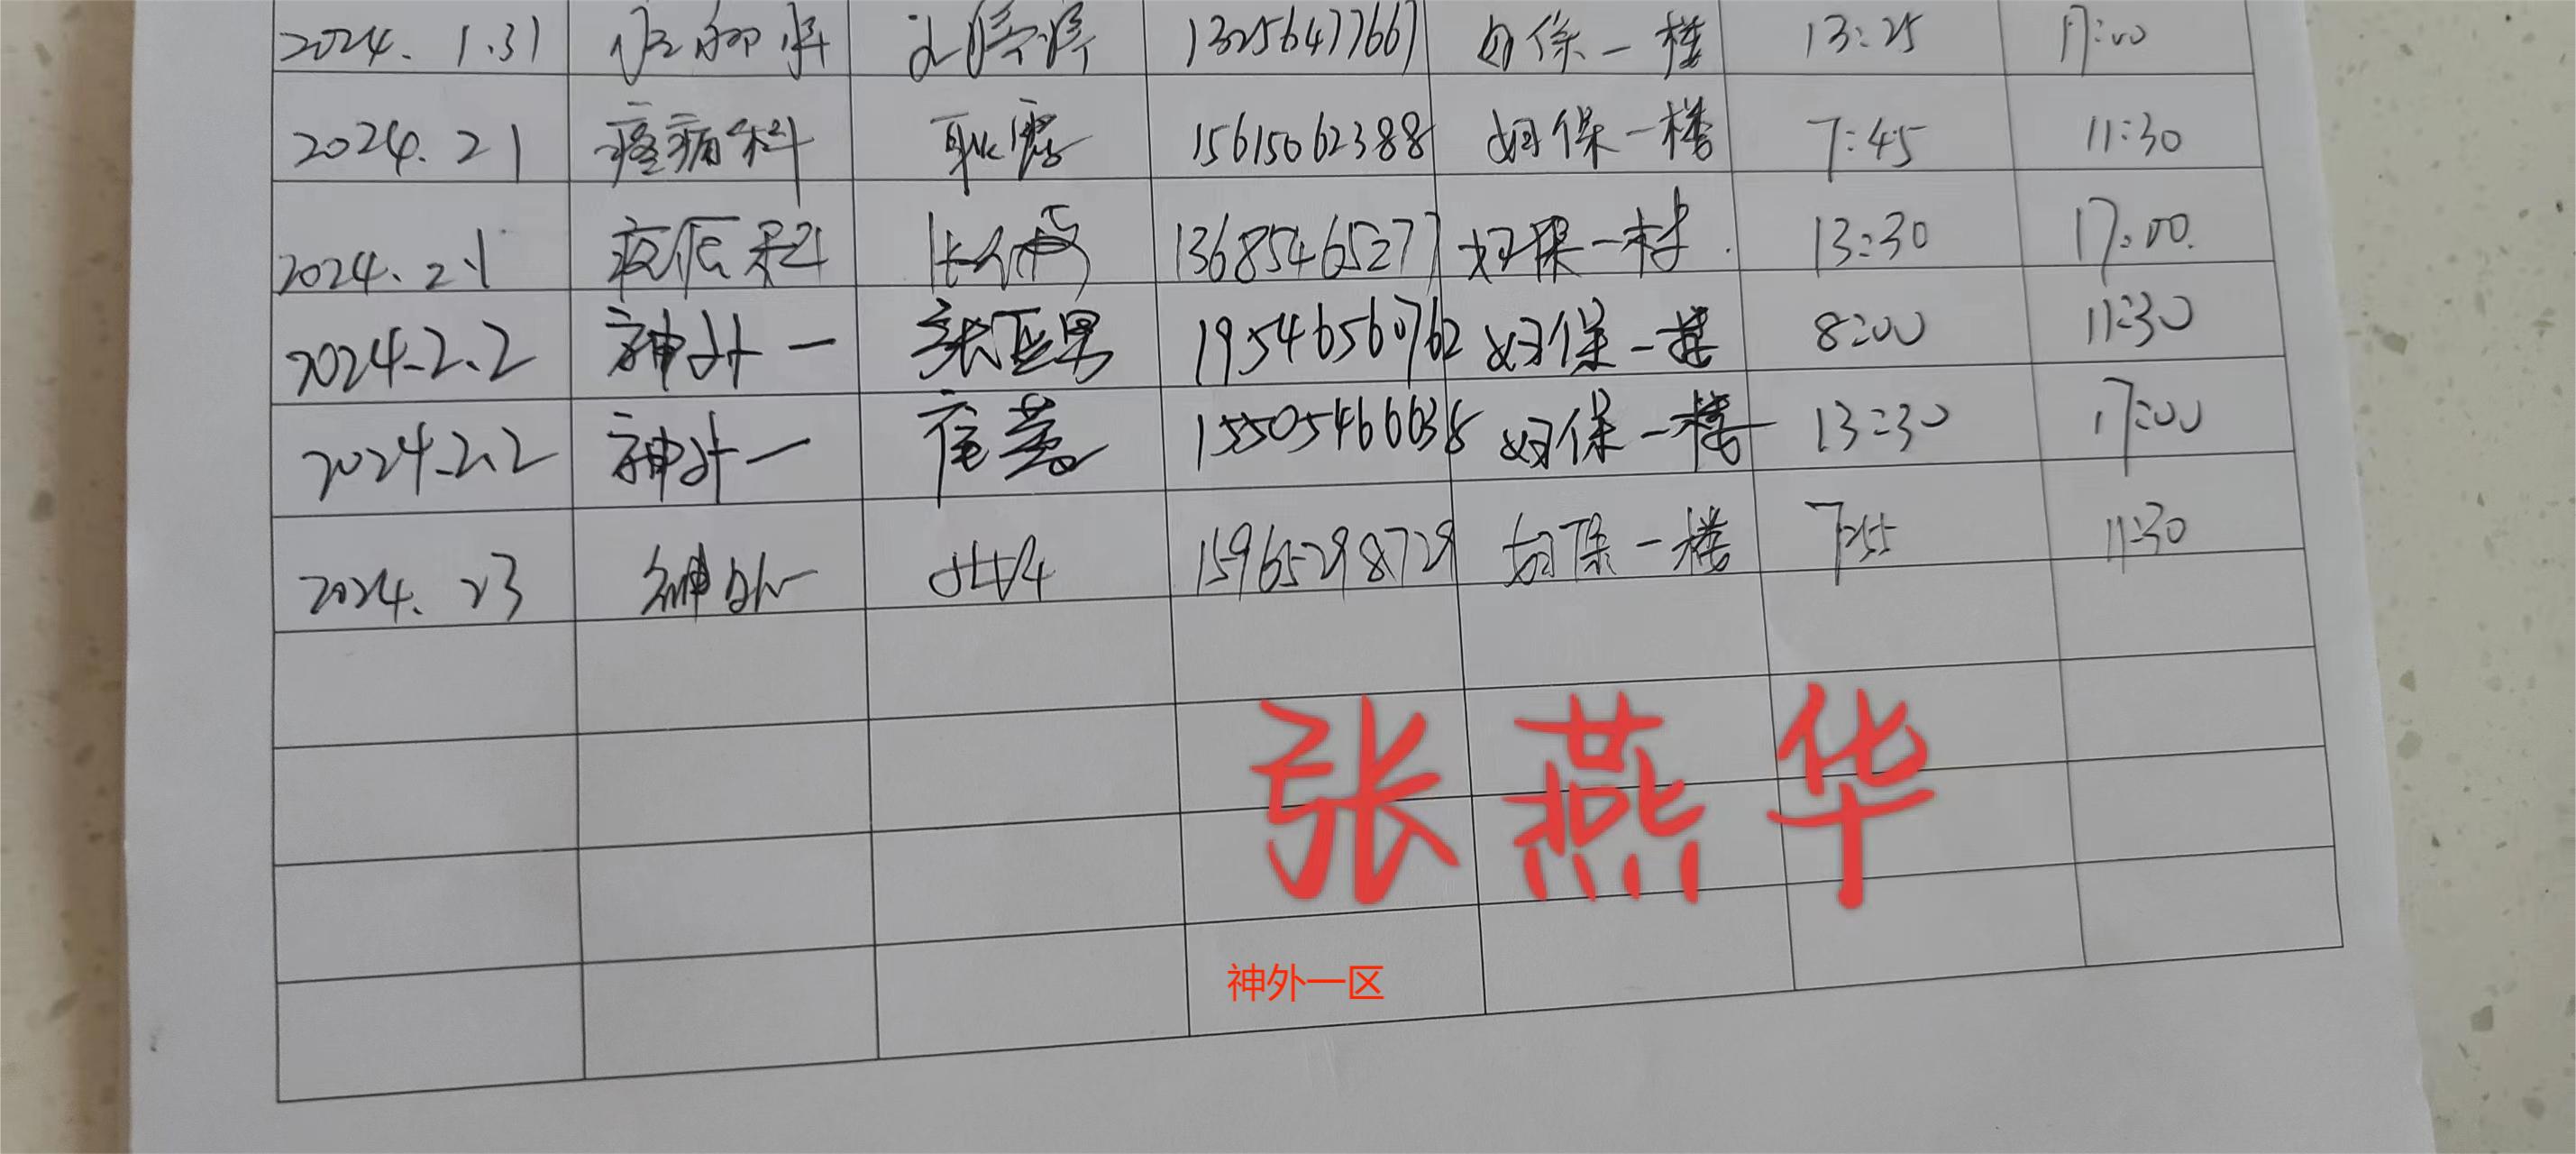 2024. 1.31 13256477667 妇保一楼 13:25 17:00
2024. 2 1 疼痛科 耿露 15615062388 妇保一楼 7:45 11:30
2024. 2.1 疼痛科 13685465277 妇保一楼 13:30 17:00
2024.2.2 神外一 张亚男 19546560762 妇保一楼 8:00 11:30
2024.2.2 神外一 15505466638 妇保一楼 13:30 17:00
2024. 2 3 神外一 15965298729 妇保一楼 7:55 11:30
张燕华
神外一区